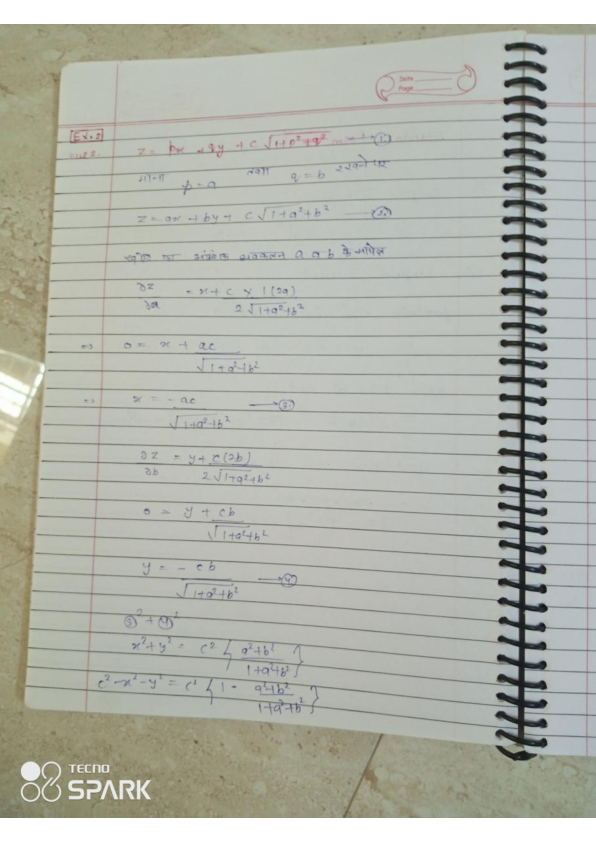 Date
Page
Ex.2
z = px + qy + c √1+p²+q² → ①
माना p = a तथा q = b रखने पर
z = ax + by + c √1+a²+b² → ②
का आंशिक अवकलन a व b के सापेक्ष
∂z/∂a = x + c × 1(2a) / 2√1+a²+b²
⇒ 0 = x + ac / √1+a²+b²
⇒ x = -ac / √1+a²+b² → ③
∂z/∂b = y + c(2b) / 2√1+a²+b²
0 = y + cb / √1+a²+b²
y = - cb / √1+a²+b² → ④
③² + ④²
x²+y² = c² { a²+b² / 1+a²+b² }
c²-x²-y² = c² { 1 - a²+b² / 1+a²+b² }
TECNO
SPARK